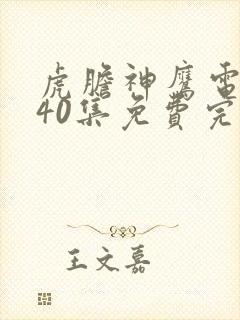 虎膽神鷹電
40集免費完
王文嘉